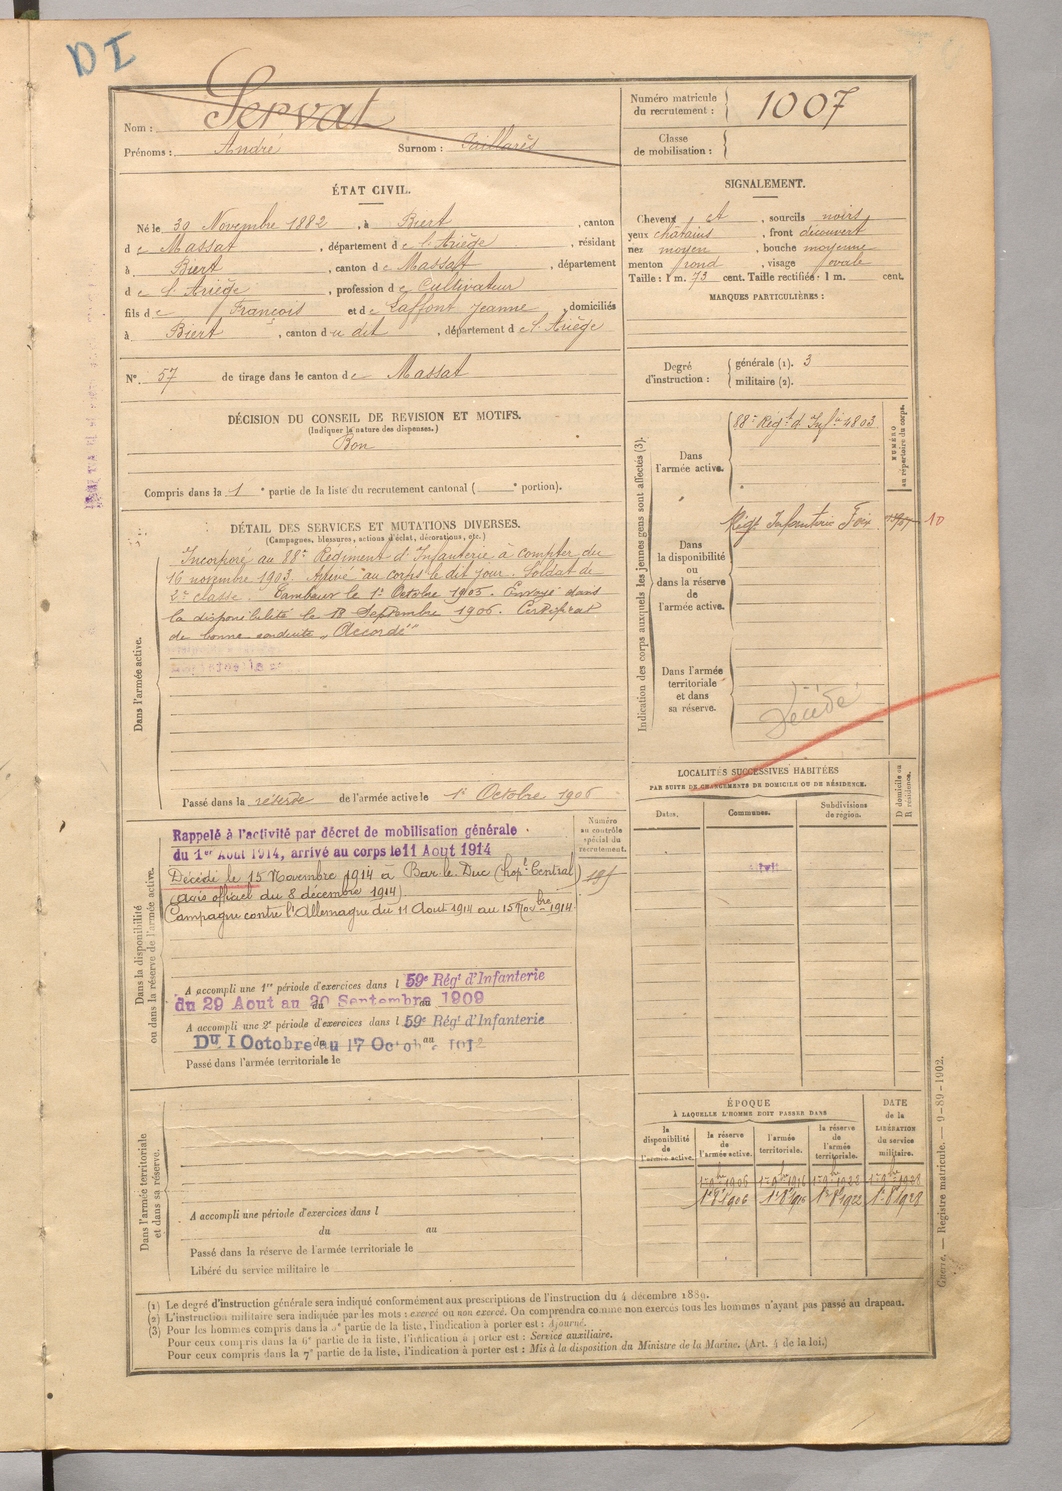 DI
Nom : Servat
Prénoms : André Surnom : Paillarès
Numéro matricule du recrutement : 1007
Classe de mobilisation :
ÉTAT CIVIL.
Né le 30 Novembre 1882, à Biert, canton
de Massat, département de l'Ariège, résidant
à Biert, canton de Massat, département
de l'Ariège, profession de Cultivateur
fils de François et de Laffont Jeanne, domiciliés
à Biert, canton du dit, département de l'Ariège
N° 57 de tirage dans le canton de Massat
SIGNALEMENT.
Cheveux et, sourcils noirs
yeux châtains, front découvert
nez moyen, bouche moyenne
menton rond, visage ovale
Taille : 1 m. 73 cent. Taille rectifiée : 1 m. cent.
MARQUES PARTICULIÈRES :
Degré d'instruction :
générale (1). 3
militaire (2).
DÉCISION DU CONSEIL DE REVISION ET MOTIFS.
(Indiquer la nature des dispenses.)
Bon
Compris dans la 1e partie de la liste du recrutement cantonal ( e portion).
DÉTAIL DES SERVICES ET MUTATIONS DIVERSES.
(Campagnes, blessures, actions d'éclat, décorations, etc.)
Dans l'armée active.
Incorporé au 88e Régiment d'Infanterie à compter du
16 novembre 1903. Arrivé au corps le dit jour. Soldat de
2e classe. Tambour le 1er Octobre 1905. Envoyé dans
la disponibilité le 18 Septembre 1906. Certificat
de bonne conduite "Accordé"
Passé dans la réserve de l'armée active le 1er Octobre 1906
Indication des corps auxquels les jeunes gens sont affectés (3).
NUMÉRO au répertoire du corps.
Dans l'armée active.
88e Régt d'Infie 1803
Dans la disponibilité ou dans la réserve de l'armée active.
Régt Infanterie Foix
10
Dans l'armée territoriale et dans sa réserve.
Décédé
LOCALITÉS SUCCESSIVES HABITÉES
PAR SUITE DE CHANGEMENTS DE DOMICILE OU DE RÉSIDENCE.
Dates. Communes. Subdivisions de région. D domicile ou R résidence.
Dans la disponibilité ou dans la réserve de l'armée active.
Numéro au contrôle spécial du recrutement.
Rappelé à l'activité par décret de mobilisation générale
du 1er Aout 1914, arrivé au corps le 11 Aout 1914
Décédé le 15 Novembre 1914 à Bar-le-Duc (hopt Central)
(avis officiel du 8 décembre 1914)
Campagne contre l'Allemagne du 11 Aout 1914 au 15 Novbre 1914
A accompli une 1re période d'exercices dans l 59e Régt d'Infanterie
du 29 Aout au 20 Septembre 1909
A accompli une 2e période d'exercices dans l 59e Régt d'Infanterie
DU 1 Octobre au 17 Octobre 1912
Passé dans l'armée territoriale le
Dans l'armée territoriale et dans sa réserve.
A accompli une période d'exercices dans l
du au
Passé dans la réserve de l'armée territoriale le
Libéré du service militaire le
ÉPOQUE
À LAQUELLE L'HOMME DOIT PASSER DANS
DATE de la LIBÉRATION du service militaire.
la disponibilité de l'armée active.
la réserve de l'armée active.
l'armée territoriale.
la réserve de l'armée territoriale.
1er 9bre 1906 1er 9bre 1916 1er 9bre 1922 1er 9bre 1928
1er 8bre 1906 1er 8bre 1916 1er 8bre 1922 1er 8bre 1928
(1) Le degré d'instruction générale sera indiqué conformément aux prescriptions de l'instruction du 4 décembre 1889.
(2) L'instruction militaire sera indiquée par les mots : exercé ou non exercé. On comprendra comme non exercés tous les hommes n'ayant pas passé au drapeau.
(3) Pour les hommes compris dans la 5e partie de la liste, l'indication à porter est : Ajourné.
Pour ceux compris dans la 6e partie de la liste, l'indication à porter est : Service auxiliaire.
Pour ceux compris dans la 7e partie de la liste, l'indication à porter est : Mis à la disposition du Ministre de la Marine. (Art. 4 de la loi.)
Guerre. — Registre matricule. — 9-89-1902.